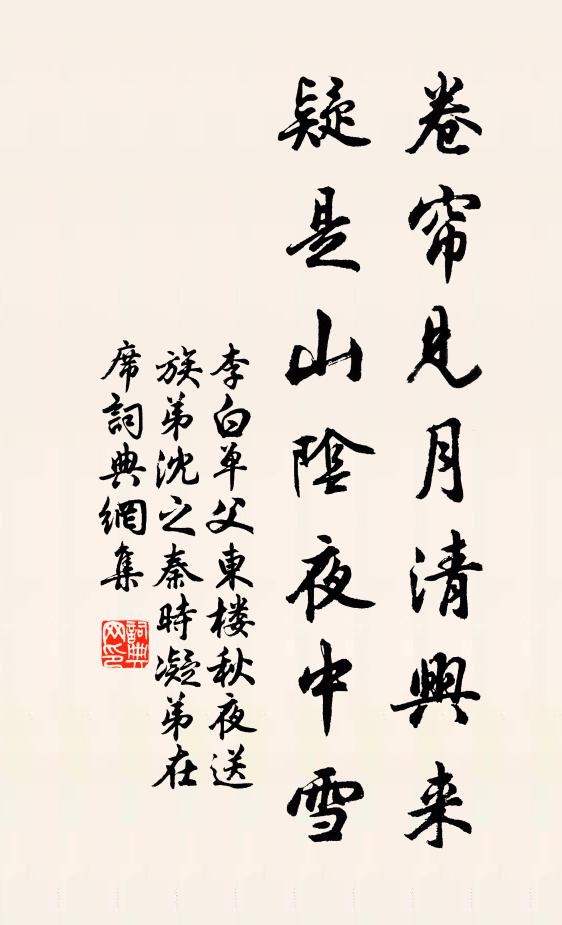 卷帘見月清興来
疑是山陰夜中雪
李白单父東楼秋夜送
族弟沈之秦時凝弟在
席詞典網集
詞典
网印